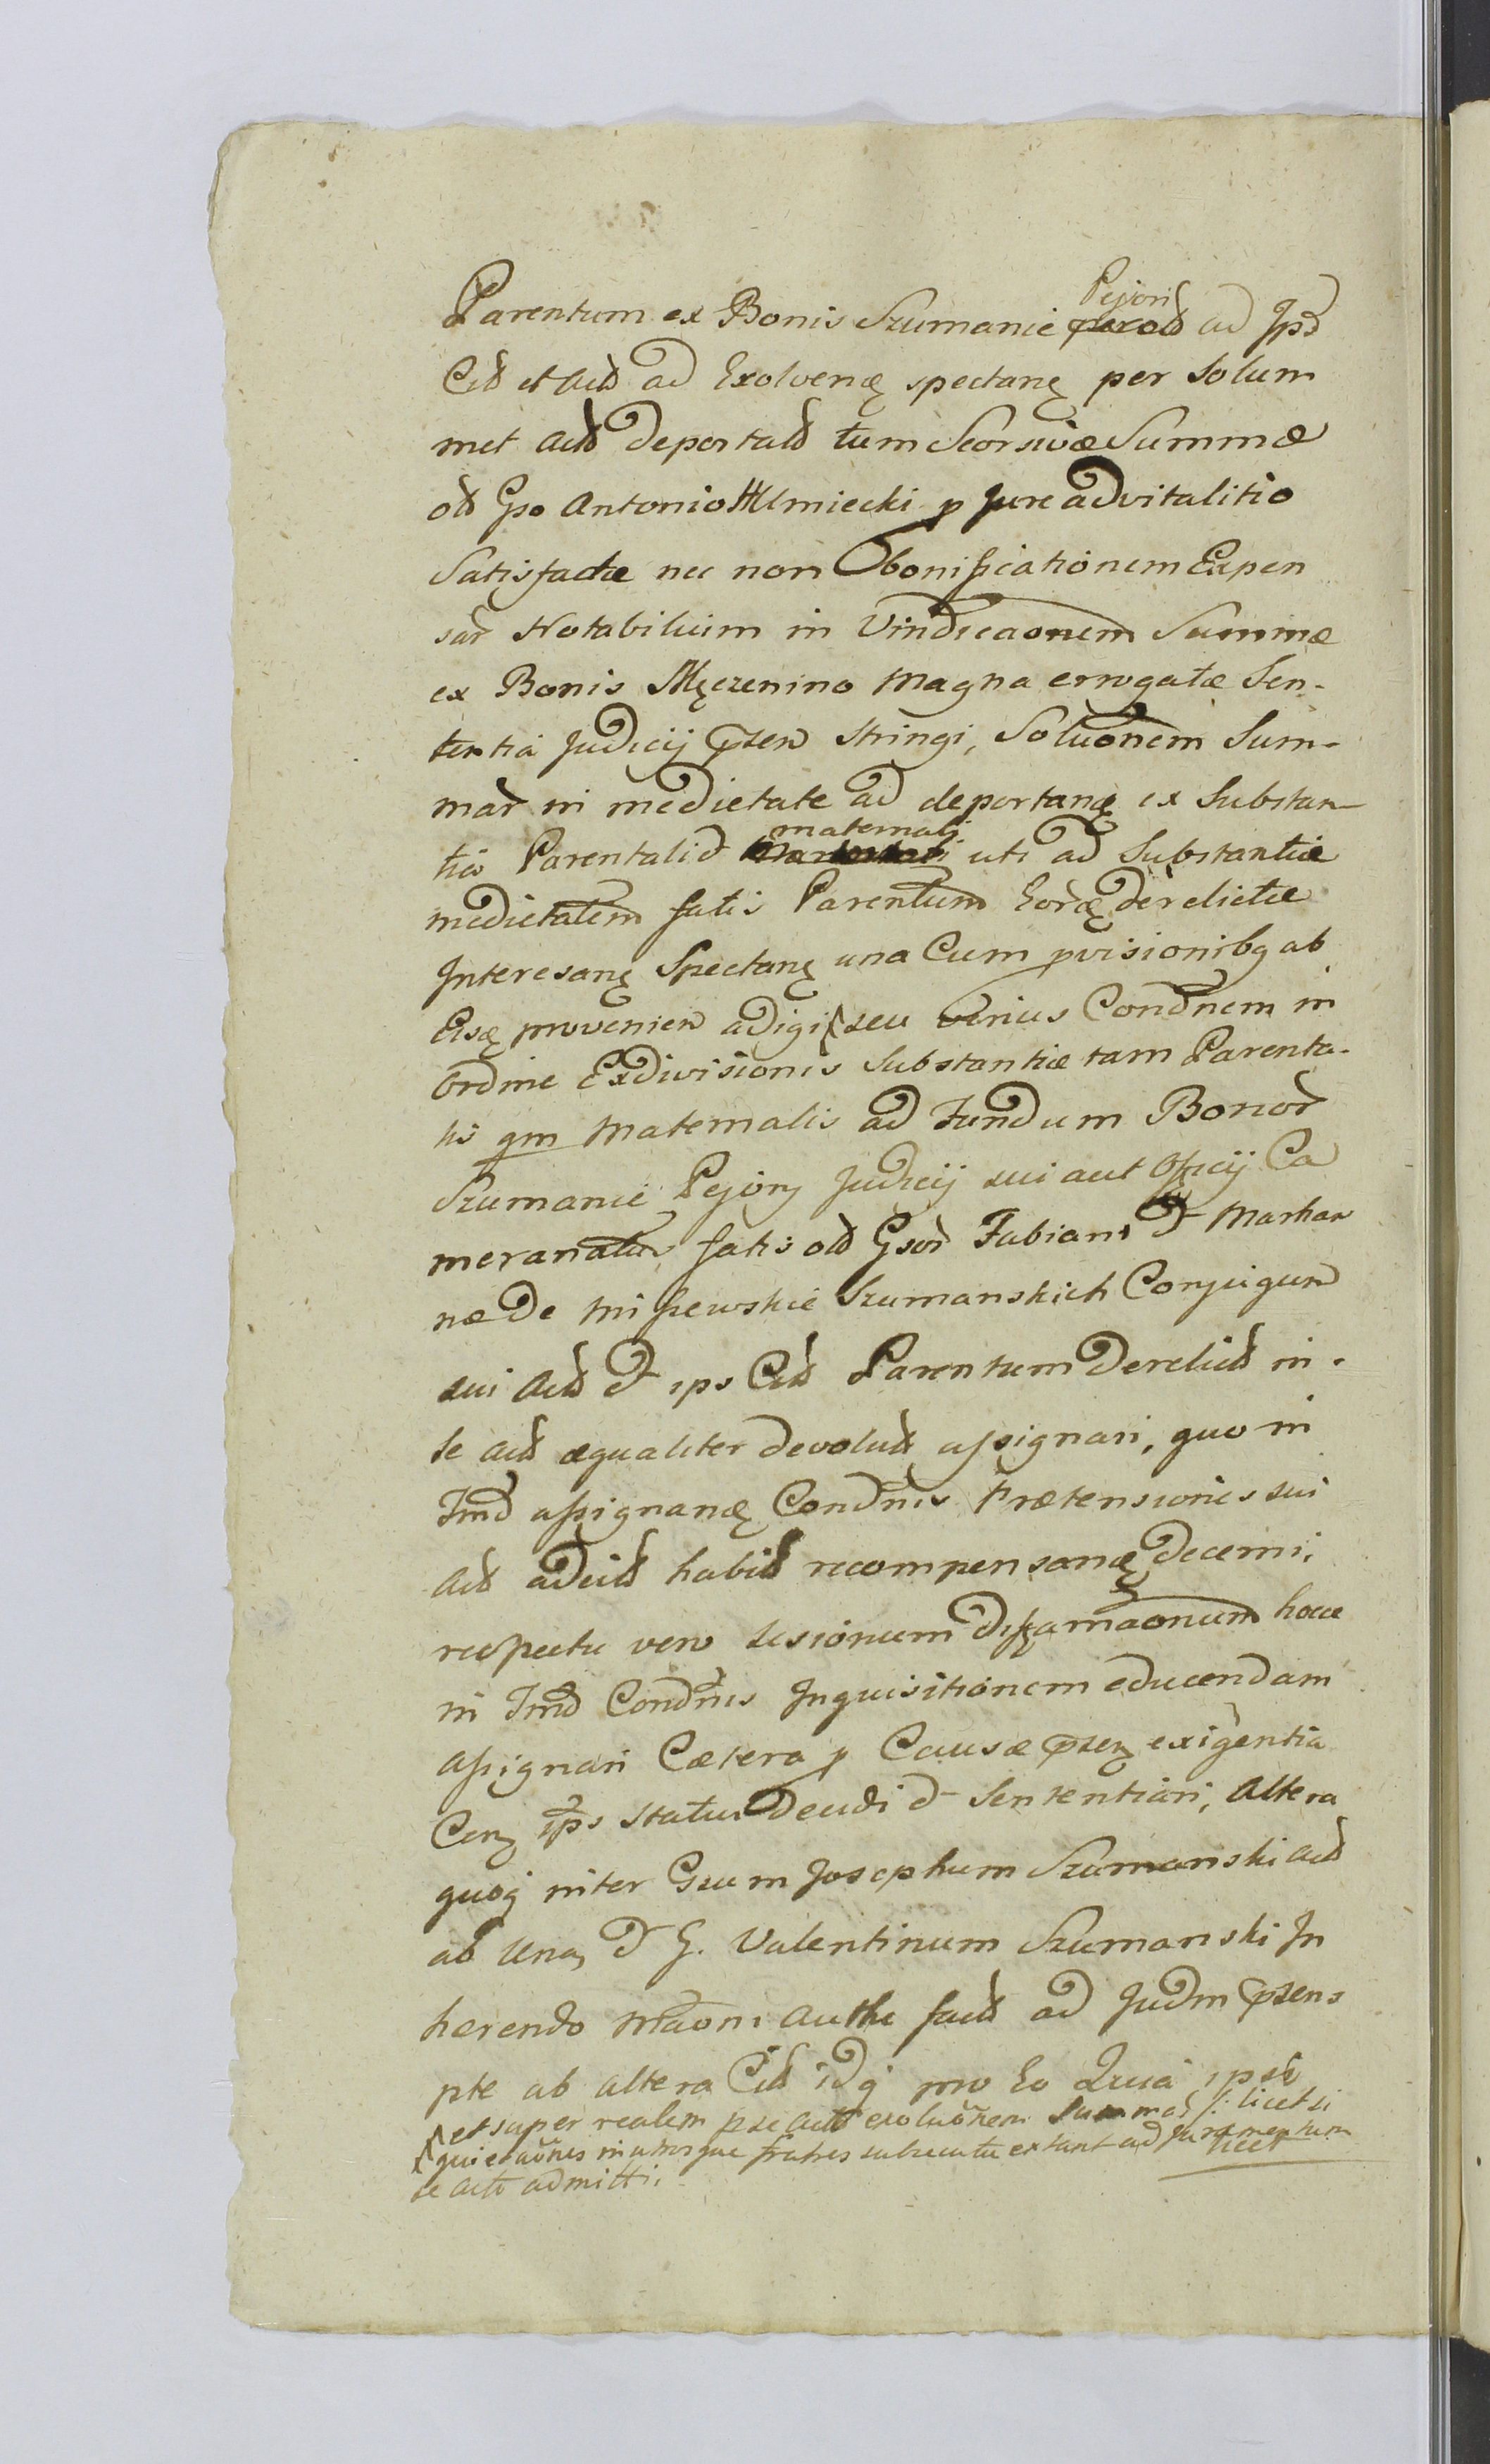 Pejori
Parentum ex Bonis Szumanie ad Jpd
Citt et Actt ad Exolvenę spectanę per Solum
met Actt deportatt tum Seorsivæ Summæ
ott Gso Antonio Ulmiecki p Jure advitalitio
Satisfactæ nec non Obonificationem Expen
sar Notabilium in Vindicaonem Summæ
ex Bonis Męczenino Magna errogatæ Sen-
tentia Judicij pzen stringi, Soluonem Sum-
mar in medietate ad deportanę ex Substan-
maternali
tia Parentali d uti ad Substantiæ
medietatem fatis Parentum Eorę derelictæ
Interesanę Spectanę una Cum pvisionibq ab
Eisę provenien adigi seu verius Condnem in
Ordine Exdivisionis Substantiæ tam Parenta-
lis qm Maternalis ad Fundum Bonor
Szumanie Pejory Judicij sui aut Officij Ca
meranatus fatis ott Gsor Fabiani d Marhan
næ De Missewskie Szumanskich Conjugum
sui Actt d ips Citt Parentum Derelictt in
se actt æqualiter devolutt assignari, quo in
Tmd assignanę Condnis Prætensionis sui
Actt ad citt habitt recompensanę decerni,
respectu vero Lesionum Diffamaonum hocce
in Tmd Condnis Inquisitionem educendam
assignari Cætera p Causæ pzenę exigentia
Cerę ips statui Decidi d Sententiari, Altera
quoq inter Gsum Josephum Szumanski Actt
ab Una, d G. Valentinum Szumanski In
herendo Maoni Authi factt ad Judm pzens
pte ab altera Citt idq mo Eo Quia ipse
et super realem p se Actt exoluonem Summar /: licet si
quietaones in utrosque fratres subsecutæ extant ad juramentum
licet
se actt admitti.